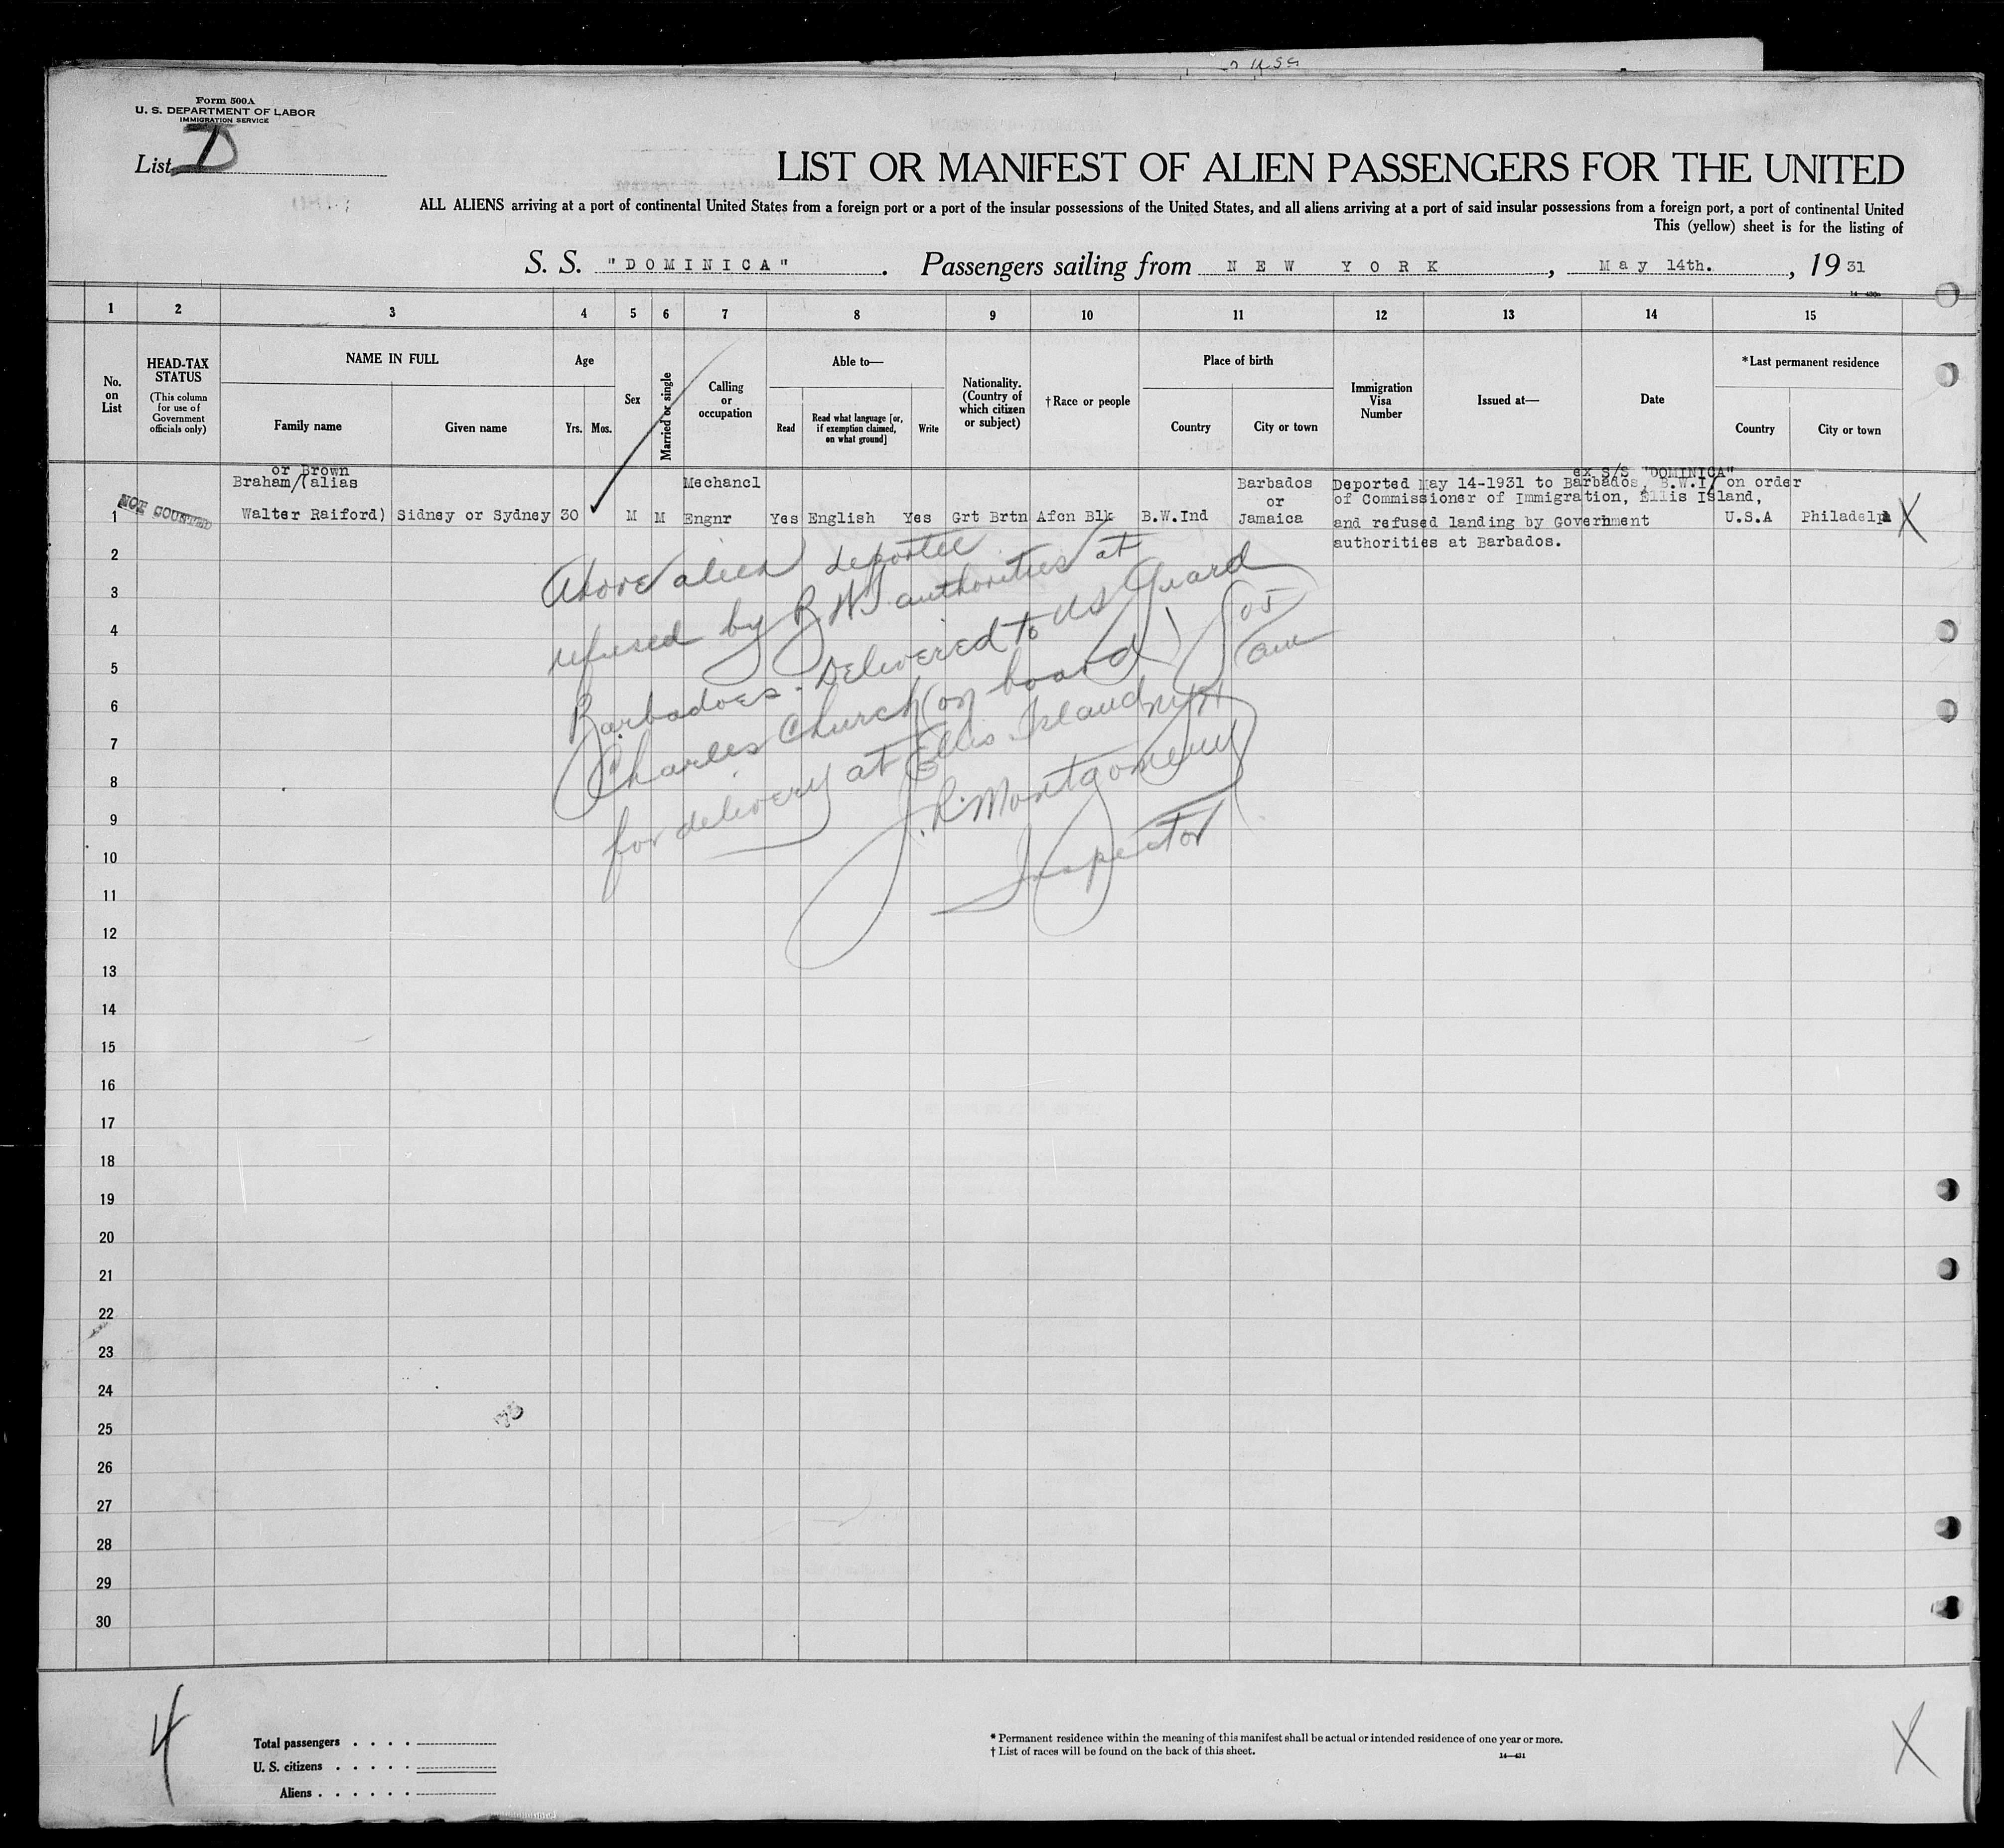 Form 500A
U. S. DEPARTMENT OF LABOR
IMMIGRATION SERVICE
List D
LIST OR MANIFEST OF ALIEN PASSENGERS FOR THE UNITED
ALL ALIENS arriving at a port of continental United States from a foreign port or a port of the insular possessions of the United States, and all aliens arriving at a port of said insular possessions from a foreign port, a port of continental United
This (yellow) sheet is for the listing of
S. S. "DOMINICA" . Passengers sailing from NEW YORK , May 14th. , 19 31
1 2 3 4 5 6 7 8 9 10 11 12 13 14 15
No. on List
HEAD-TAX STATUS
(This column for use of Government officials only)
NAME IN FULL
Family name
Given name
Age
Yrs. Mos.
Sex
Married or single
Calling or occupation
Able to—
Read
Read what language [or, if exemption claimed, on what ground]
Write
Nationality. (Country of which citizen or subject)
†Race or people
Place of birth
Country
City or town
Immigration Visa Number
Issued at—
Date
*Last permanent residence
Country
City or town
or Brown
ex S/S "DOMINICA"
Braham/(alias Mechancl Barbados Deported May 14-1931 to Barbados, B.W.I/ on order
or of Commissioner of Immigration, Ellis Island,
NOT COUNTED
1 Walter Raiford) Sidney or Sydney 30 M M Engnr Yes English Yes Grt Brtn Afcn Blk B.W.Ind Jamaica and refused landing by Government U.S.A Philadelp X
authorities at Barbados.
Above alien deportee
refused by B.W.I authorities at
Barbadoes - Delivered to US Guard
Charles Church (on board)
for delivery at Ellis Island NY
J.R. Montgomery
Inspector
2
3
4
5
6
7
8
9
10
11
12
13
14
15
16
17
18
19
20
21
22
23
24
25
26
27
28
29
30
4
Total passengers . . . .
U. S. citizens . . . . .
Aliens . . . . . .
* Permanent residence within the meaning of this manifest shall be actual or intended residence of one year or more.
† List of races will be found on the back of this sheet.
14—431
X